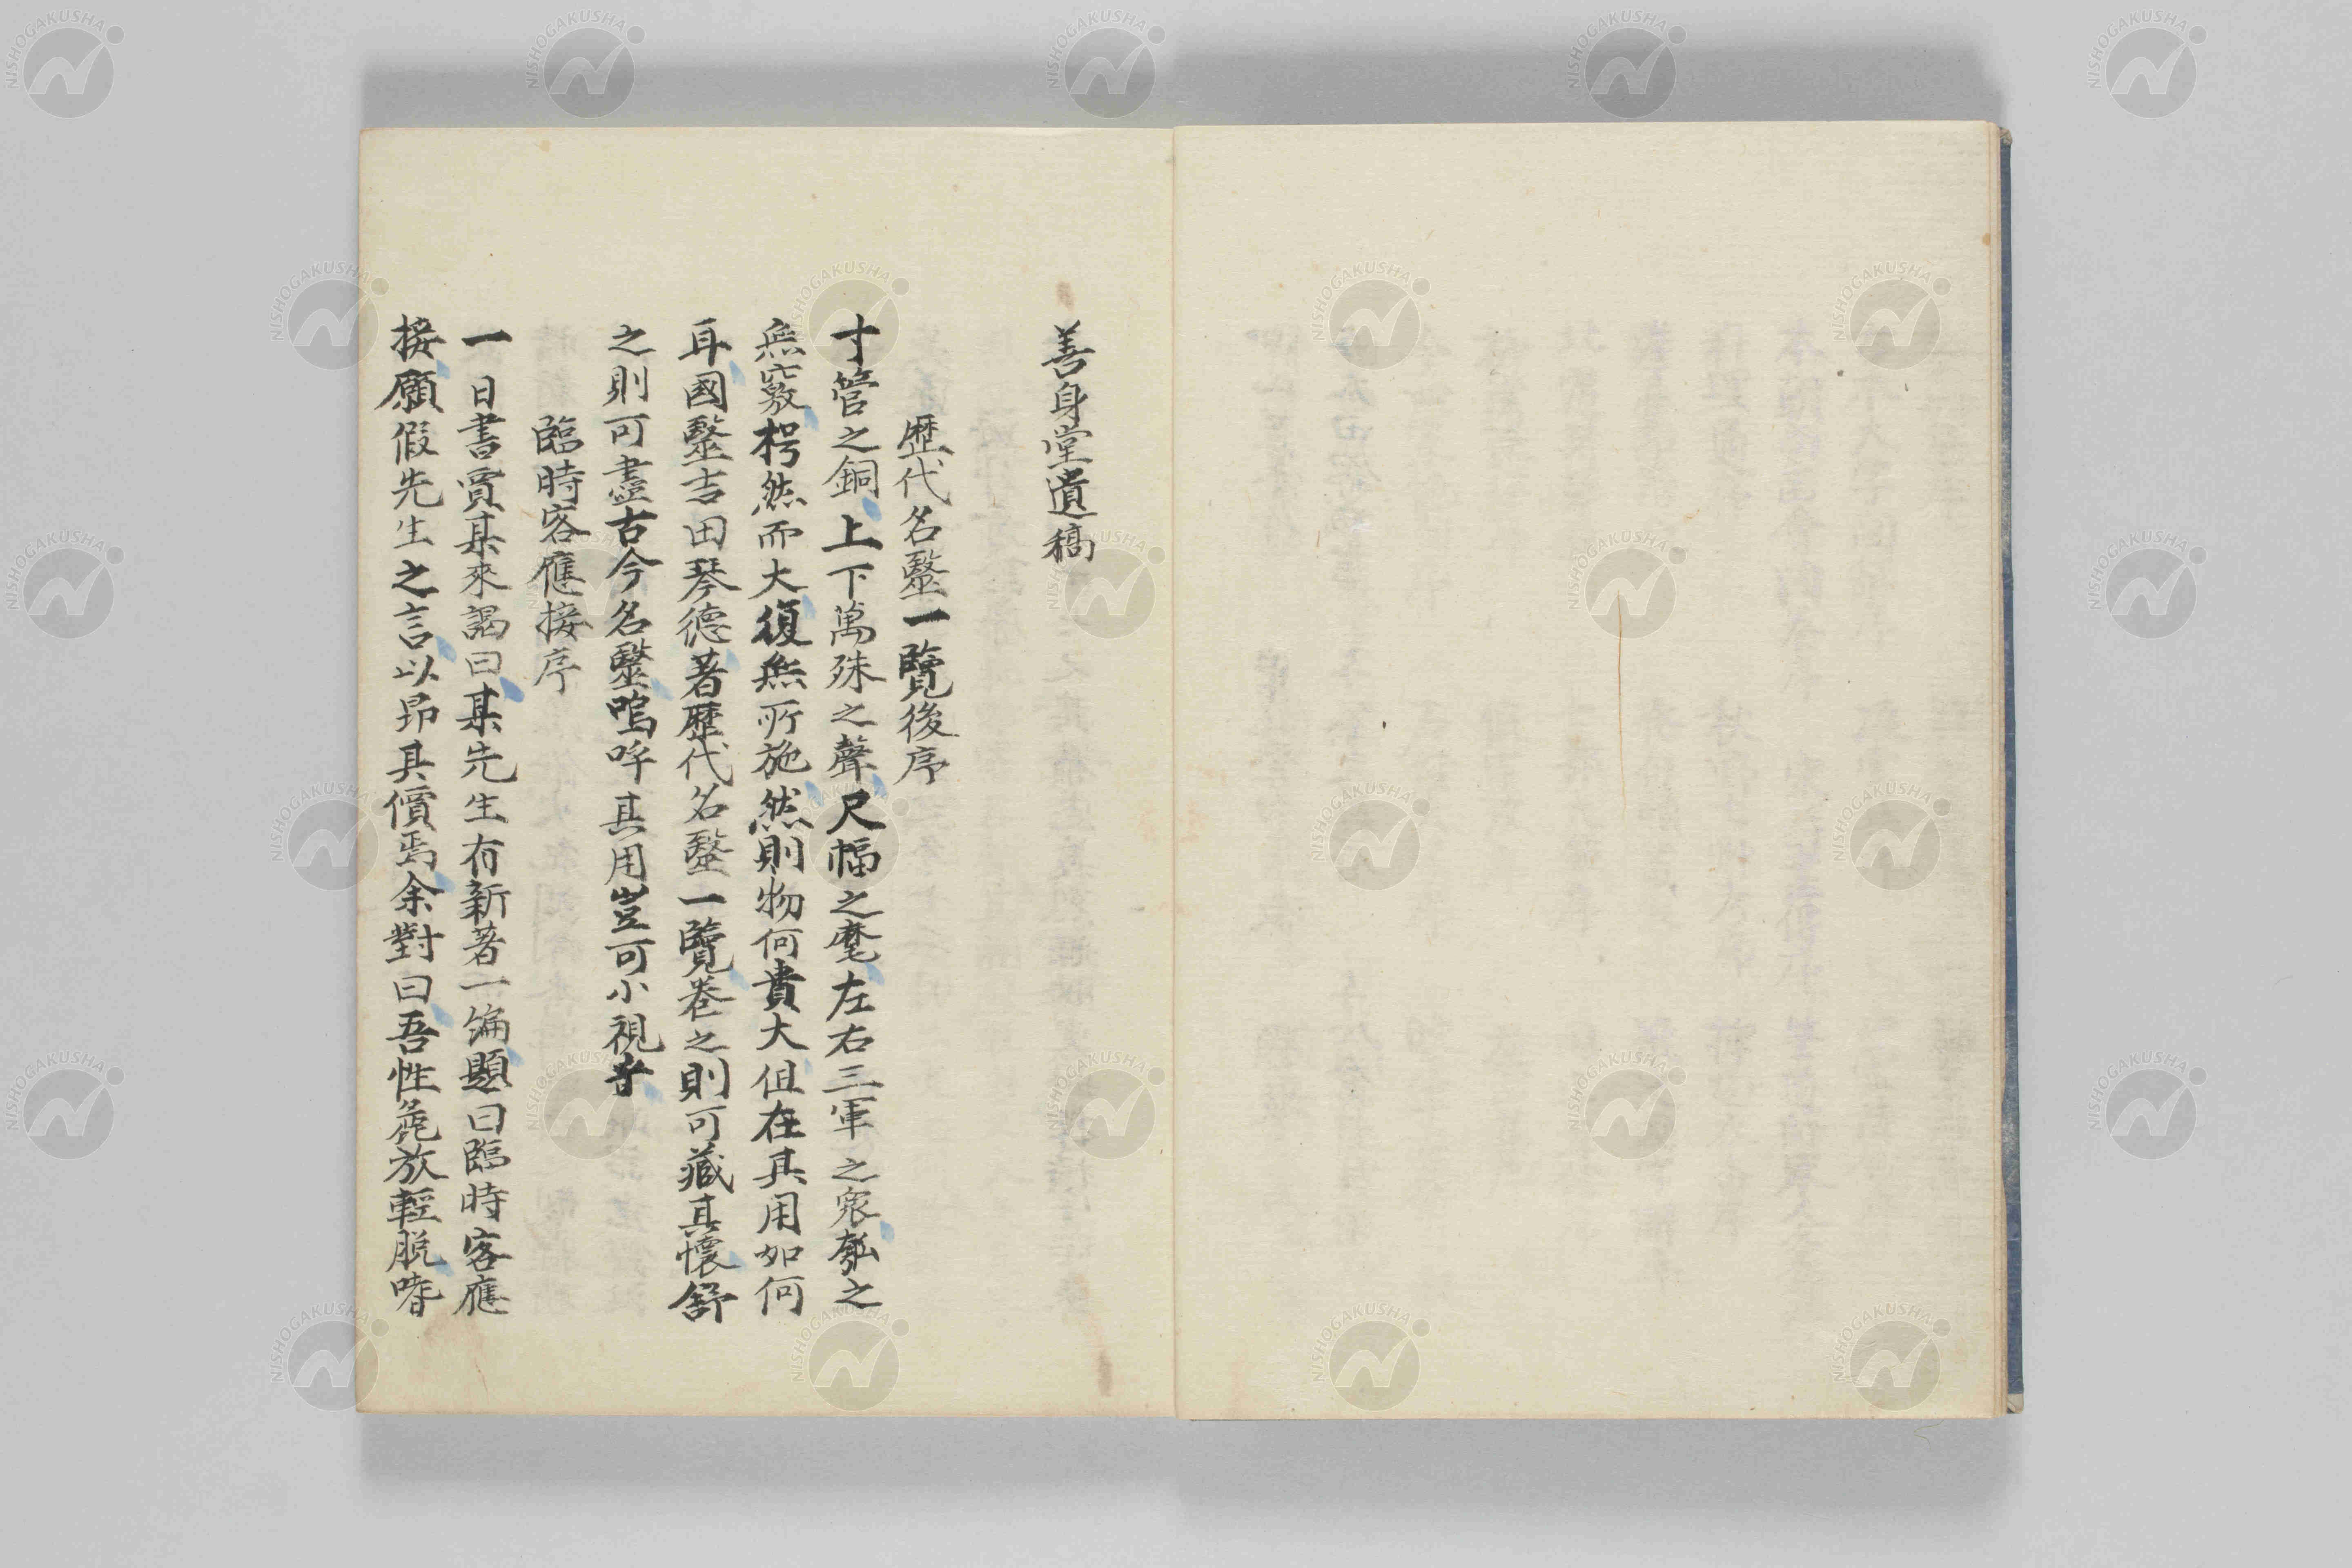 善身堂遺稿
歴代名毉一覽後序
寸管之銅上下萬殊之聲尺幅之麾左右三軍之衆瓠之
無竅枵然而大復無所施然則物何貴大但在其用如何
耳國毉吉田琴德著歷代名毉一覽卷之則可藏其懷舒
之則可盡古今名毉嗚呼其用豈可小視乎
臨時客應接序
一日書賈某來謁曰某先生有新著一編題曰臨時客應
接願假先生之言以昂其價焉余對曰吾性麁放輕脱嗜
NISHOGAKUSHA